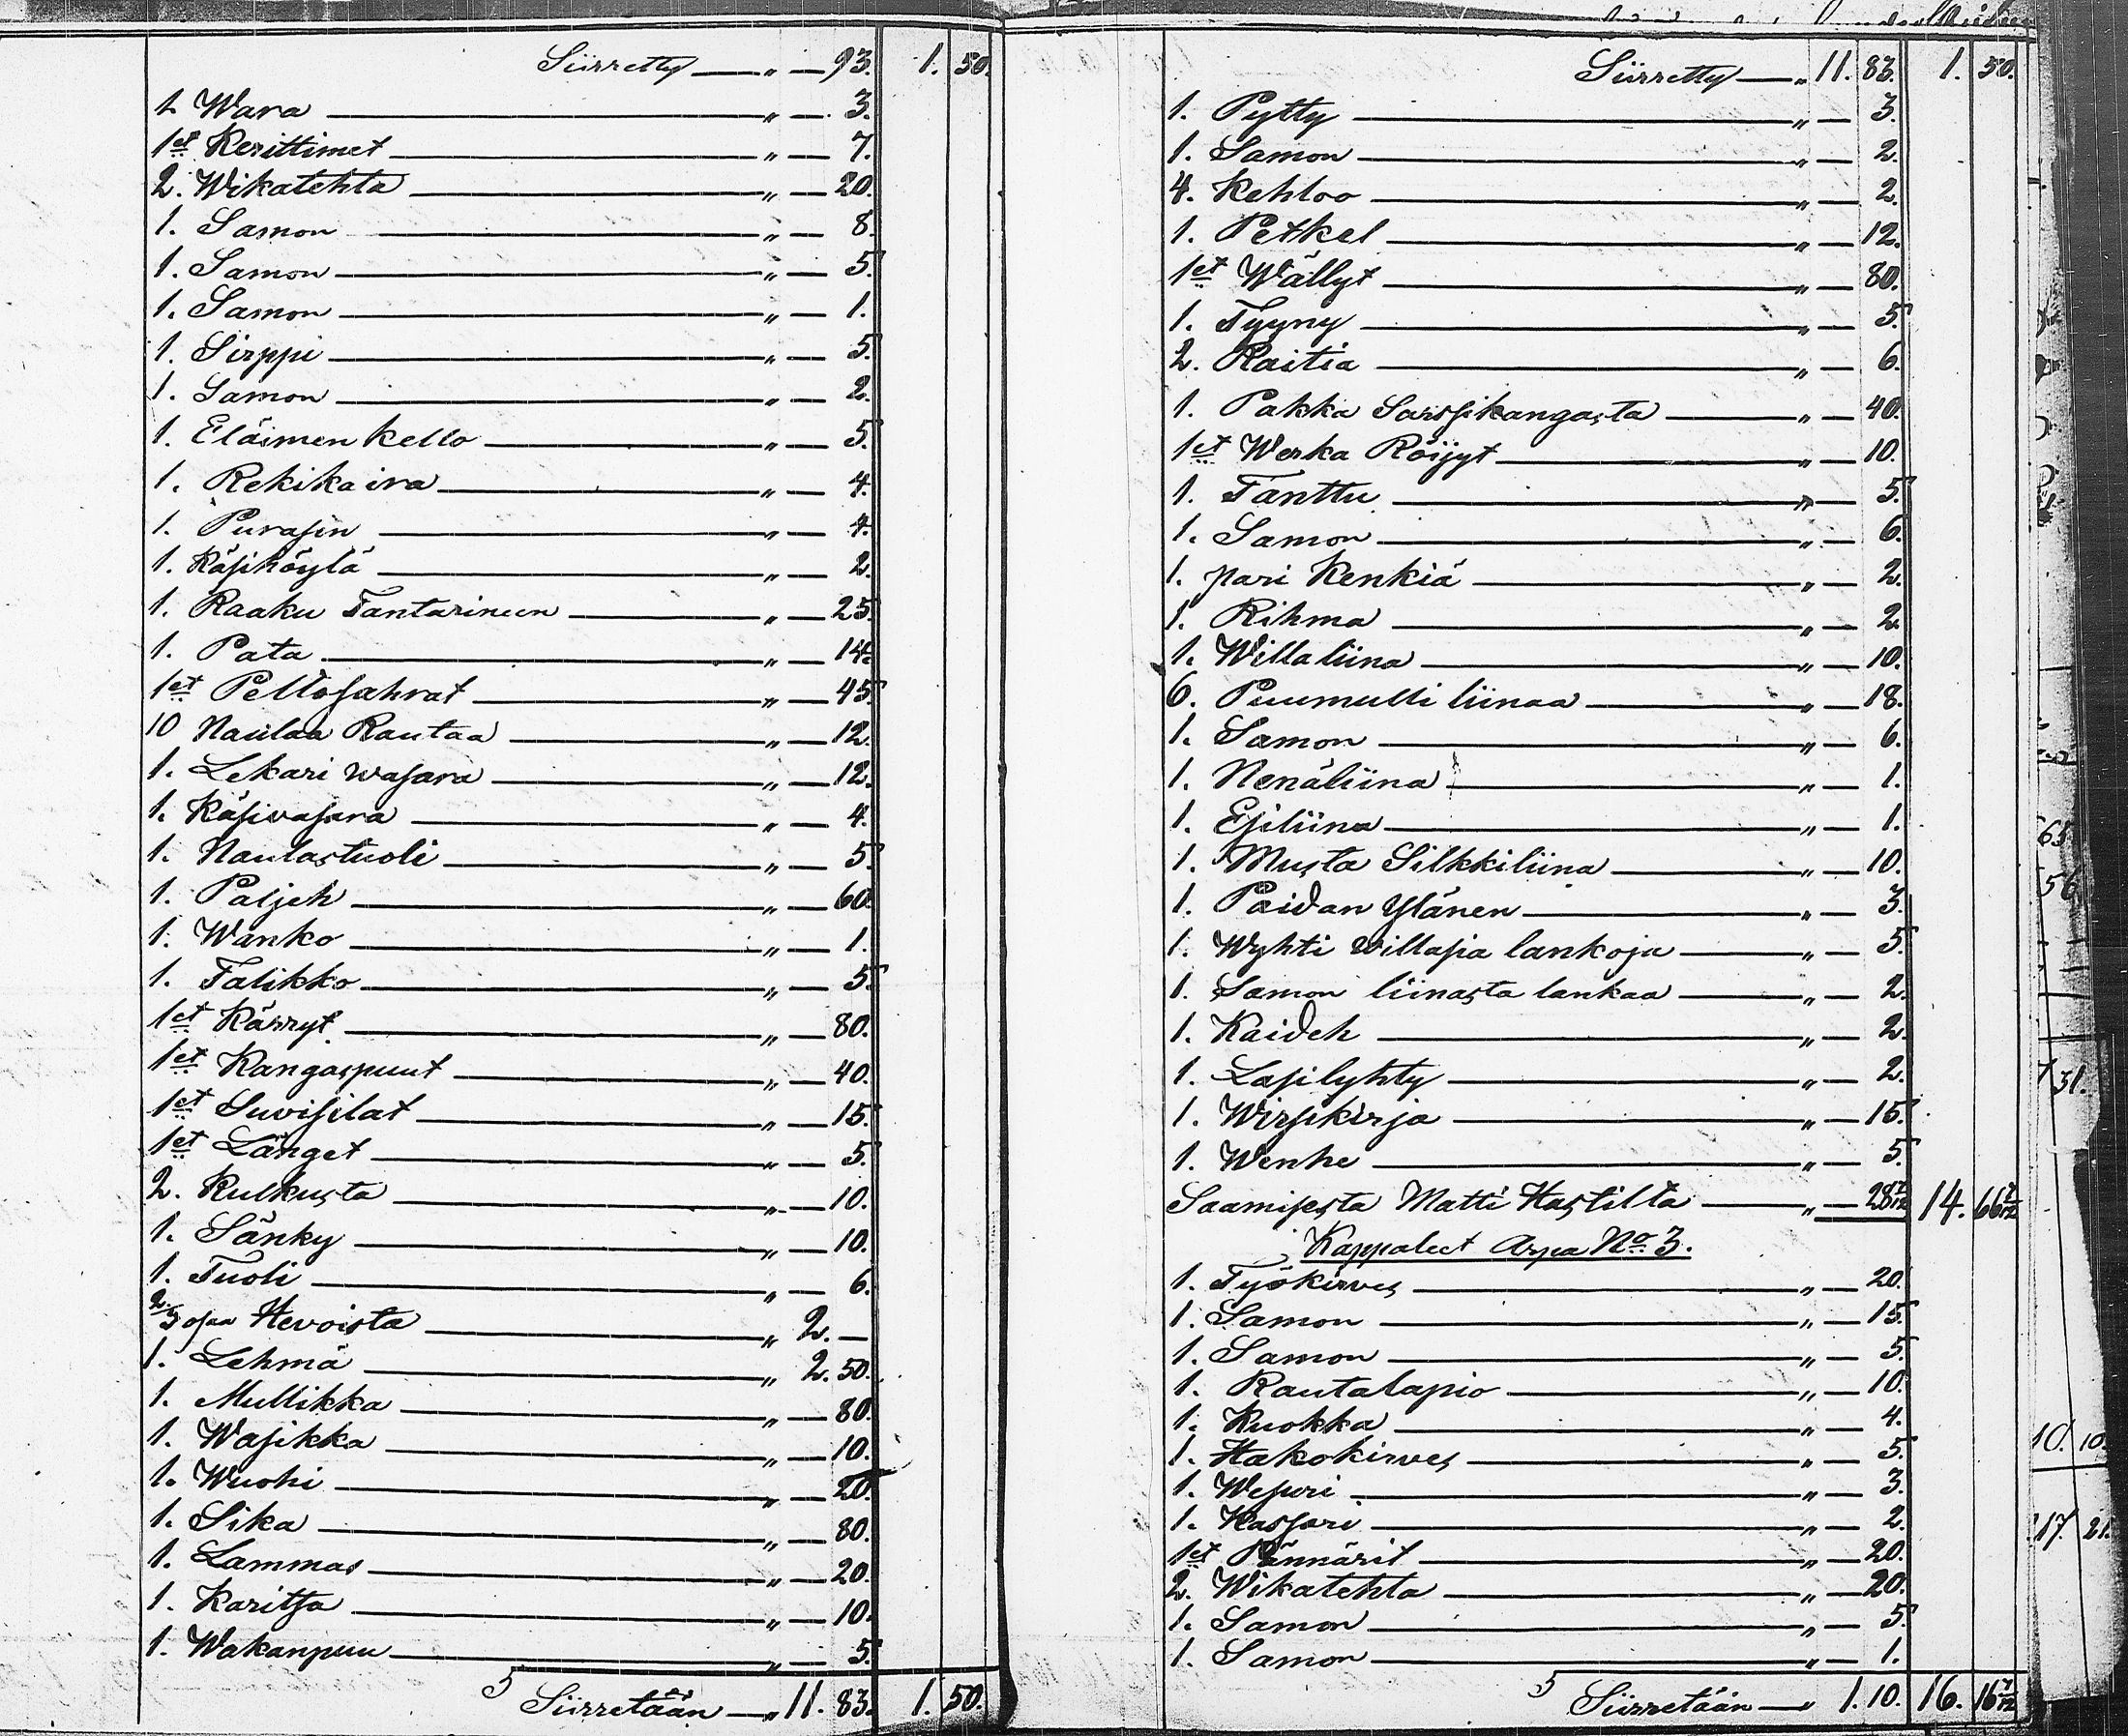 Siirretty — „ — 93. 1. 50.
1 Wara — „ — 3.
1et Kerittimet — „ — 7.
2. Wikatehta — „ — 20.
1. Samon — „ — 8.
1. Samon — „ — 5.
1. Samon — „ — 1.
1. Sirppi — „ — 5.
1. Samon — „ — 2.
1. Eläimen kello — „ — 5.
1. Rekikaira — „ — 4.
1. Purasin — „ — 4.
1. Käsihöylä — „ — 2.
1. Raaku Tantarineen — „ — 25.
1. Pata — „ — 14.
1et Peltosahrat — „ — 45.
10 Naulaa Rautaa — „ — 12.
1. Lekari wasara — „ — 12.
1. Käsivasara — „ — 4.
1. Naulastuoli — „ — 5.
1. Paljeh — „ — 60.
1. Wanko — „ — 1.
1. Talikko — „ — 5.
1et Kärryt — „ — 80.
1et Kangaspuut — „ — 40.
1et Suvisilat — „ — 15.
1et Länget — „ — 5.
2. Kulkusta — „ — 10.
1. Sänky — „ — 10.
1. Tuoli — „ — 6.
2/3 osaa Hevoista — „ 2. —
1. Lehmä — „ 2. 50.
1. Mullikka — „ — 80.
1. Wasikka — „ — 10.
1. Wuohi — „ — 20.
1. Sika — „ — 80.
1. Lammas — „ — 20.
1. Karitsa — „ — 10.
1. Wakanpuu — „ — 5.
Siirretään — „ 11. 83. 1. 50.
Siirretty — „ 11. 83. 1. 50.
1. Pytty — „ — 3.
1. Samon — „ — 2.
4. Kehloo — „ — 2.
1. Petkel — „ — 12.
1et Wällyt — „ — 80.
1. Tyyny — „ — 5.
2. Raitia — „ — 6.
1. Pakka Sarssikangasta — „ — 40.
1et Werka Röijyt — „ — 10.
1. Tanttu — „ — 5.
1. Samon — „ — 6.
1. pari Kenkiä — „ — 2.
1. Rihma — „ — 2.
1. Willaliina — „ — 10.
6. Puumulli liinaa — „ — 18.
1. Samon — „ — 6.
1. Nenäliina — „ — 1.
1. Esiliina — „ — 1.
1. Musta Silkkiliina — „ — 10.
1. Paidan Ylänen — „ — 3.
1. Wyhti willasia lankoja — „ — 5.
1. Samon liinasta lankaa — „ — 2.
1. Kaideh — „ — 2.
1. Lasilyhty — „ — 2.
1. Wirsikirja — „ — 15.
1. Wenhe — „ — 5.
Saamisesta Matti Hastilta — „ — 28 7/12 14. 66 7/12
Kappaleet Arpa No 3.
1. Työkirves — „ — 20.
1. Samon — „ — 15.
1. Samon — „ — 5.
1. Rautalapio — „ — 10.
1. Kuokka — „ — 4.
1. Hakokirves — „ — 5.
1. Wesuri — „ — 3.
1. Kassari — „ — 2.
1et Pännärit — „ — 20.
2. Wikatehta — „ — 20.
1. Samon — „ — 5.
1. Samon — „ — 1.
Siirretään — „ 1. 10. 16. 16 7/12